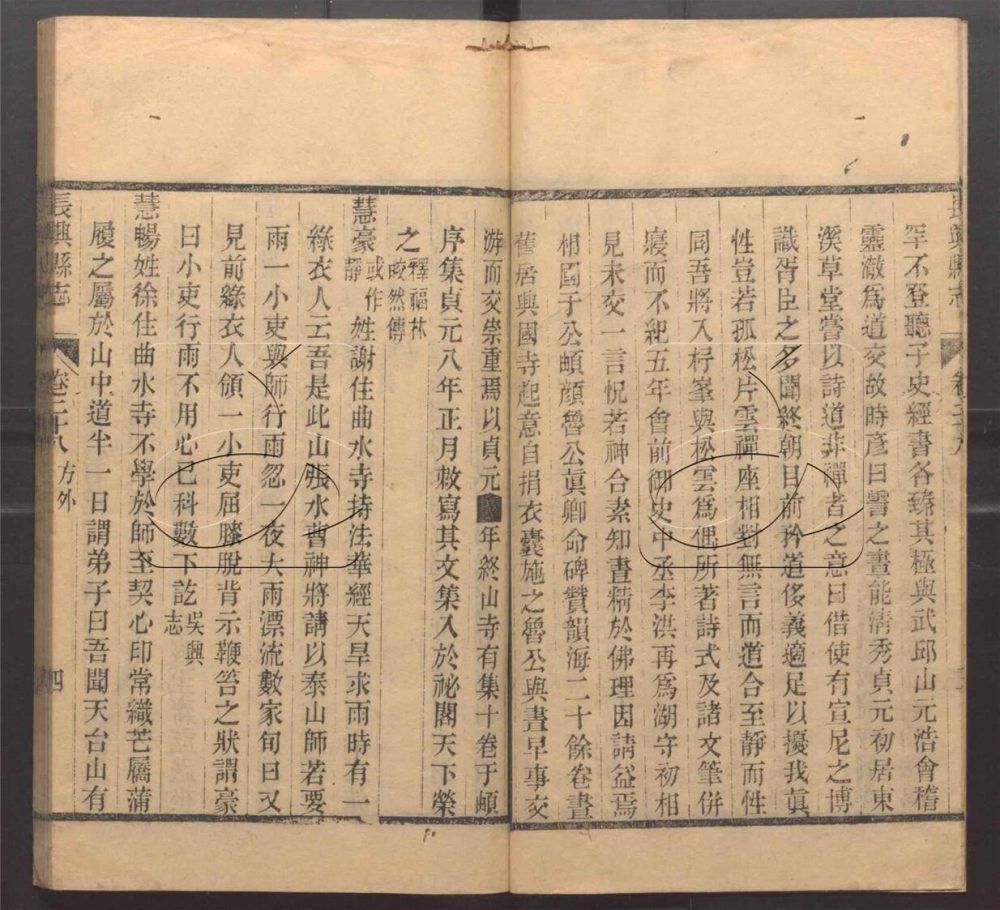 長興縣志
卷二十八
罕不登聽子史經書各臻其極與武邱山元浩會稽
靈澈爲道交故時彥曰霅之晝能清秀貞元初居東
溪草堂嘗以詩道非禪者之意曰借使有宣尼之博
識胥臣之多聞終朝目前矜道侈義適足以擾我眞
性豈若孤松片雲禪座相對無言而道合至靜而性
同吾將入杼峯與松雲爲偶所著詩式及諸文筆併
寢而不紀五年會前御史中丞李洪再爲湖守初相
見未交一言怳若神合素知晝精於佛理因請益焉
相國于公頔顔魯公眞卿命碑贊韻海二十餘卷晝
舊居興國寺起意自捐衣囊施之魯公與晝早事交
游而交崇重焉以貞元年終山寺有集十卷于頔
序集貞元八年正月敕寫其文集入於祕閣天下榮
之釋福林皎然傳
慧豪或作靜姓謝住曲水寺持法華經天旱求雨時有一
綠衣人云吾是此山張水曹神將請以泰山師若要
雨一小吏與師行雨忽一夜大雨漂流數家旬日又
見前綠衣人領一小吏屈膝脫背示鞭笞之狀謂豪
曰小吏行雨不用心已科數下訖吳興志
慧暢姓徐住曲水寺不學於師至契心印常織芒屩蒲
履之屬於山中道半一日謂弟子曰吾聞天台山有
長興縣志
卷二十八
方外
四